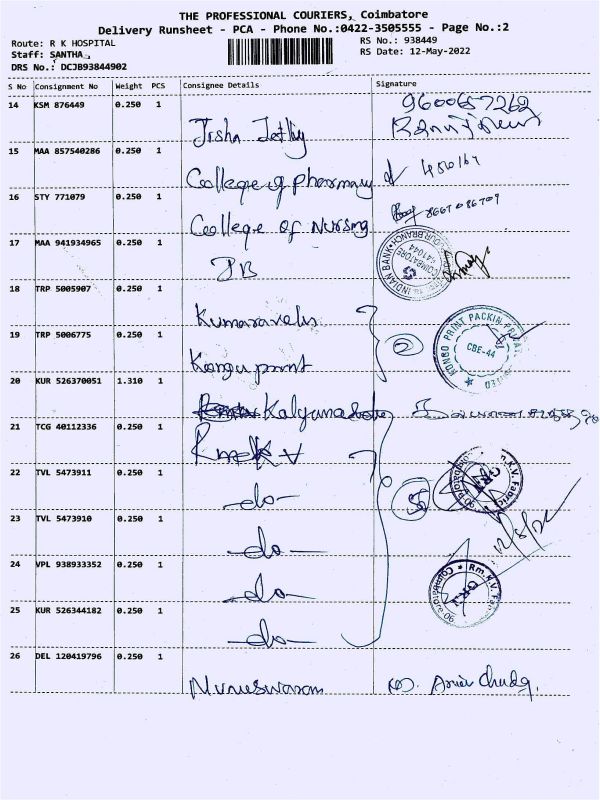 THE PROFESSIONAL COURIERS, Coimbatore
Delivery Runsheet - PCA - Phone No.:0422-3505555 - Page No.:2
Route: R K HOSPITAL
RS No.: 938449
Staff: SANTHA
RS Date: 12-May-2022
DRS No.: DCJB93844902
S No Consignment No Weight PCS Consignee Details Signature
14 KSM 876449 0.250 1
9600657262
Jisha
15 MAA 857540286 0.250 1
College of pharmacy
16 STY 771079 0.250 1
College of Nursing
17 MAA 941934965 0.250 1
INDIAN BANK
COIMBATORE
641044
18 TRP 5005907 0.250 1
Kumaravels
19 TRP 5006775 0.250 1
Kongu print
2
KONGO PRINT PACKIN
CBE-44
20 KUR 526370051 1.310 1
21 TCG 40112336 0.250 1
22 TVL 5473911 0.250 1
-do-
5
Rm.K.V. Fabric
23 TVL 5473910 0.250 1
-do-
12/5/22
24 VPL 938933352 0.250 1
-do-
Rm.K.V. Fab
25 KUR 526344182 0.250 1
-do-
26 DEL 120419796 0.250 1
Muneswaran